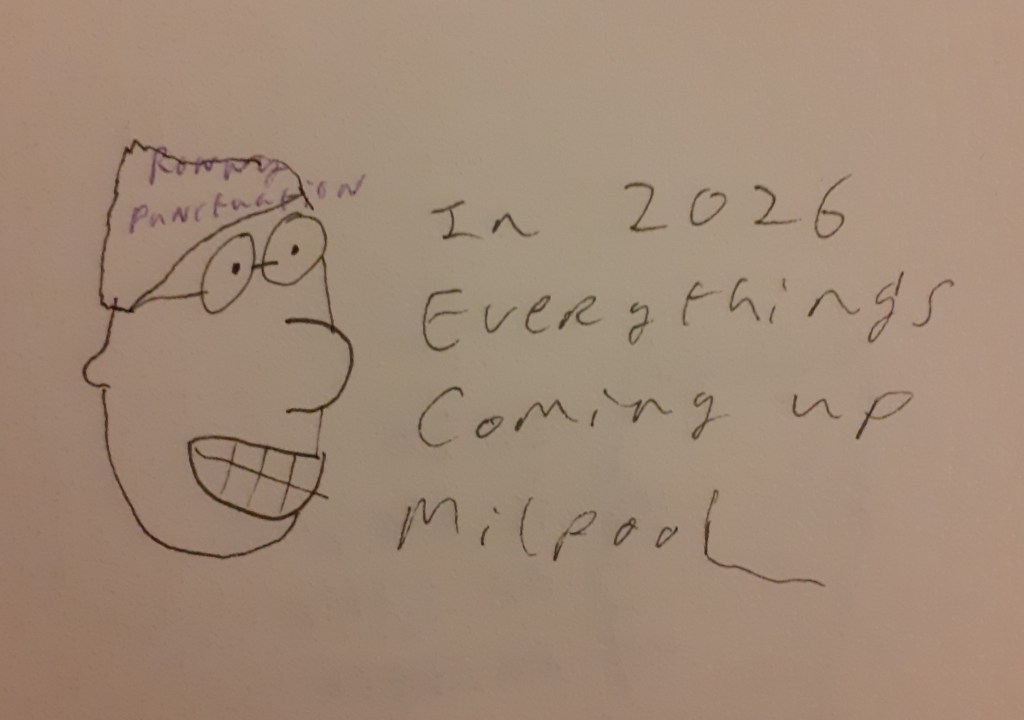 Punctuation
In 2026
Everythings
Coming up
Milpool